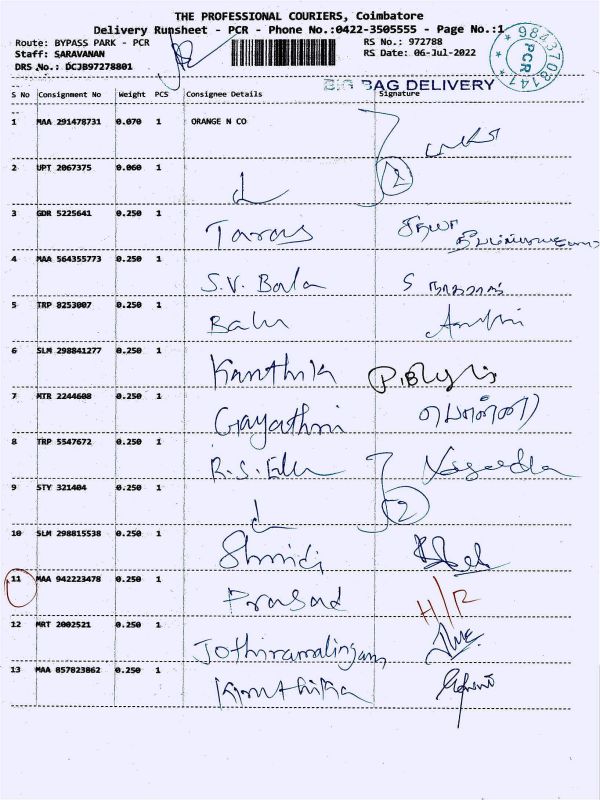 THE PROFESSIONAL COURIERS, Coimbatore
Delivery Runsheet - PCR - Phone No.:0422-3505555 - Page No.:1
Route: BYPASS PARK - PCR RS No.: 972788
Staff: SARAVANAN RS Date: 06-Jul-2022
DRS No.: DCJB97278801
* 9843703147 *
PCR
BIG BAG DELIVERY
S No Consignment No Weight PCS Consignee Details Signature
1 MAA 291478731 0.070 1 ORANGE N CO
2 UPT 2067375 0.060 1 2
3 GDR 5225641 0.250 1 Taras
4 MAA 564355773 0.250 1 S.V. Bala
5 TRP 8253007 0.250 1 Balu
6 SLM 298841277 0.250 1 Karthik
7 MTR 2244608 0.250 1 Gayathri
8 TRP 5547672 0.250 1 R.S.
9 STY 321404 0.250 1 2
10 SLM 298815538 0.250 1
11 MAA 942223478 0.250 1 Prasad H/R
12 MRT 2002521 0.250 1 Jothiramalingam
13 MAA 857823862 0.250 1 Karthika